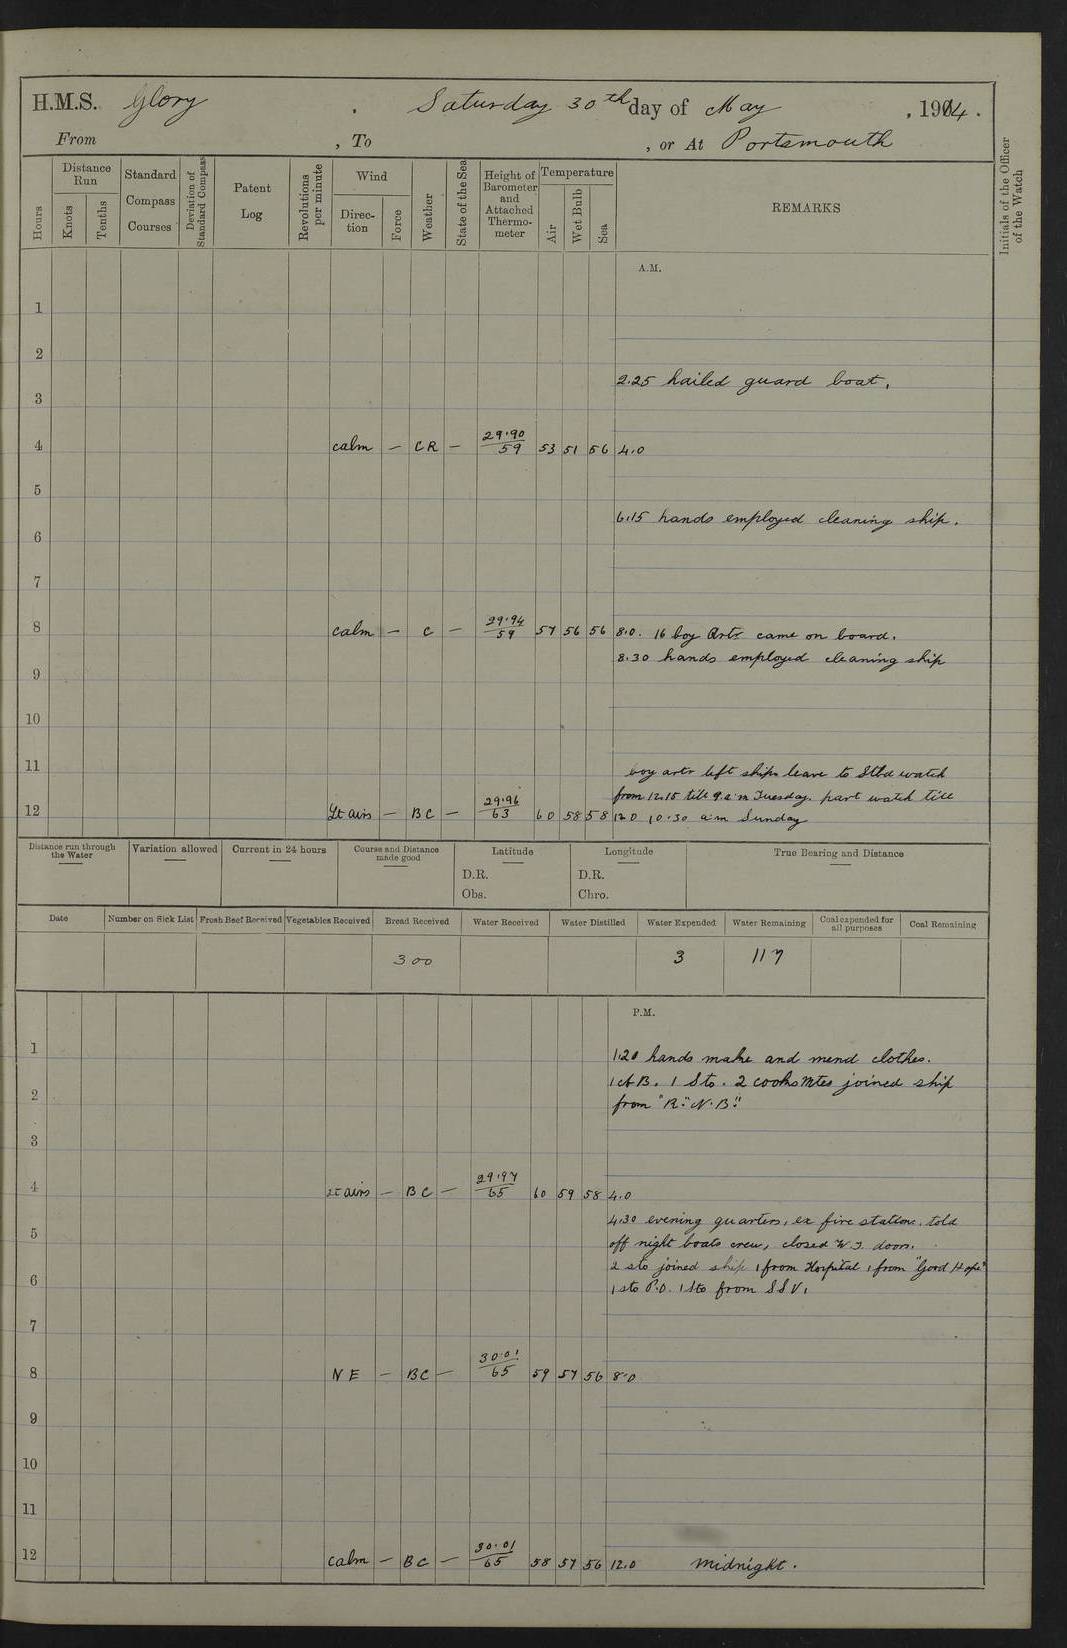 H.M.S. Glory , Saturday 30th day of May , 1914.
From , To , or At Portsmouth
Hours
Distance Run
Knots
Tenths
Standard Compass Courses
Deviation of Standard Compass
Patent Log
Revolutions per minute
Wind
Direc-tion
Force
Weather
State of the Sea
Height of Barometer and Attached Thermo-meter
Temperature
Air
Wet Bulb
Sea
REMARKS
Initials of the Officer of the Watch
A.M.
1
2
2.25 hailed guard boat.
3
4 calm — CR — 29.90/59 53 51 56 4.0
5
6.15 hands employed cleaning ship.
6
7
8 calm — C — 29.94/59 57 56 56 8.0. 16 boy Artr came on board.
8.30 hands employed cleaning ship
9
10
11
boy artr left ship leave to Stbd watch
from 12.15 till 9 a.m Tuesday. part watch till
12 Lt airs — BC — 29.96/63 60 58 58 12.0 10.30 a.m Sunday
Distance run through the Water
Variation allowed
Current in 24 hours
Course and Distance made good
Latitude
D.R.
Obs.
Longitude
D.R.
Chro.
True Bearing and Distance
Date
Number on Sick List
Fresh Beef Received
Vegetables Received
Bread Received
Water Received
Water Distilled
Water Expended
Water Remaining
Coal expended for all purposes
Coal Remaining
300 3 117
P.M.
1
1.20 hands make and mend clothes.
1 AB. 1 Sto. 2 cooks Mtes joined ship
2
from "R.N.B."
3
4 Lt airs — BC — 29.97/65 60 59 58 4.0
4.30 evening quarters, ex fire stations. told
5
off night boats crew, closed W.T. doors.
2 sto joined ship 1 from Hospital 1 from "Good Hope"
6
1 sto P.O. 1 Sto from SSV.
7
8 NE — BC — 30.01/65 59 57 56 8.0
9
10
11
12 calm — BC — 30.01/65 58 57 56 12.0 Midnight.